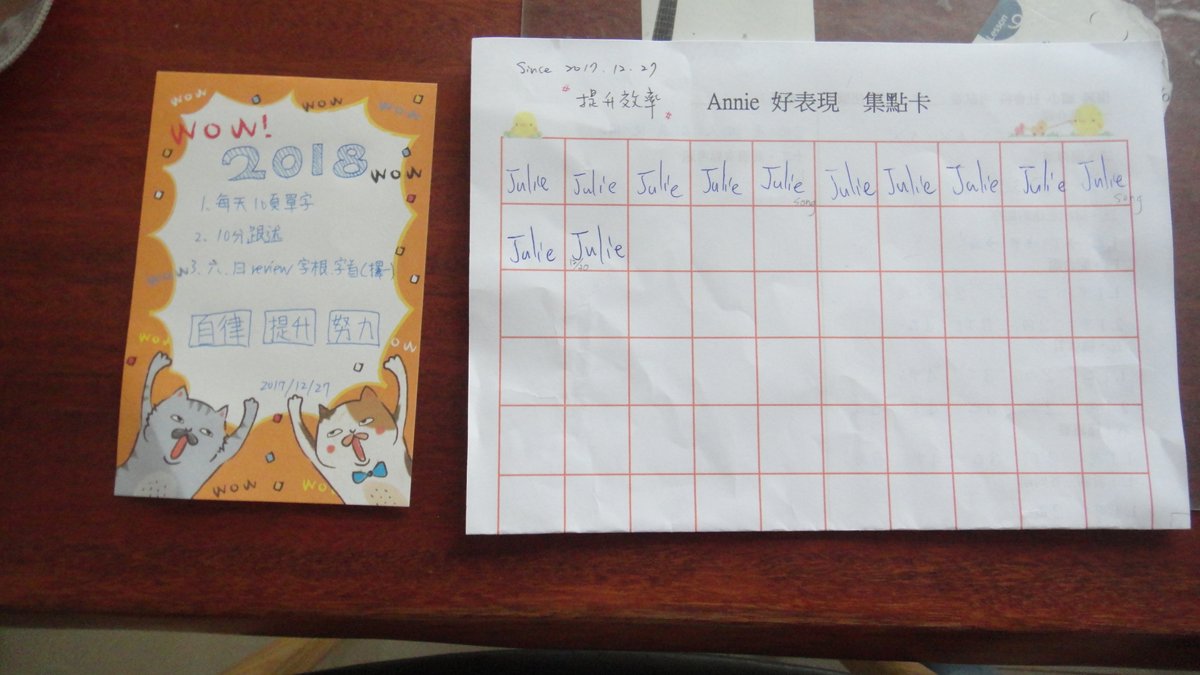 WOW
WOW
WOW!
2018
WOW
1. 每天10頁單字
2. 10分跟述
WOW
3. 六、日 review 字根.字首(擇一)
自律 提升 努力
WOW
WOW
2017/12/27
WOW
WOW
Lesson
Since 2017.12.27
"提升效率"
Annie 好表現 集點卡
Julie Julie Julie Julie Julie Julie Julie Julie Julie Julie
song song
Julie Julie